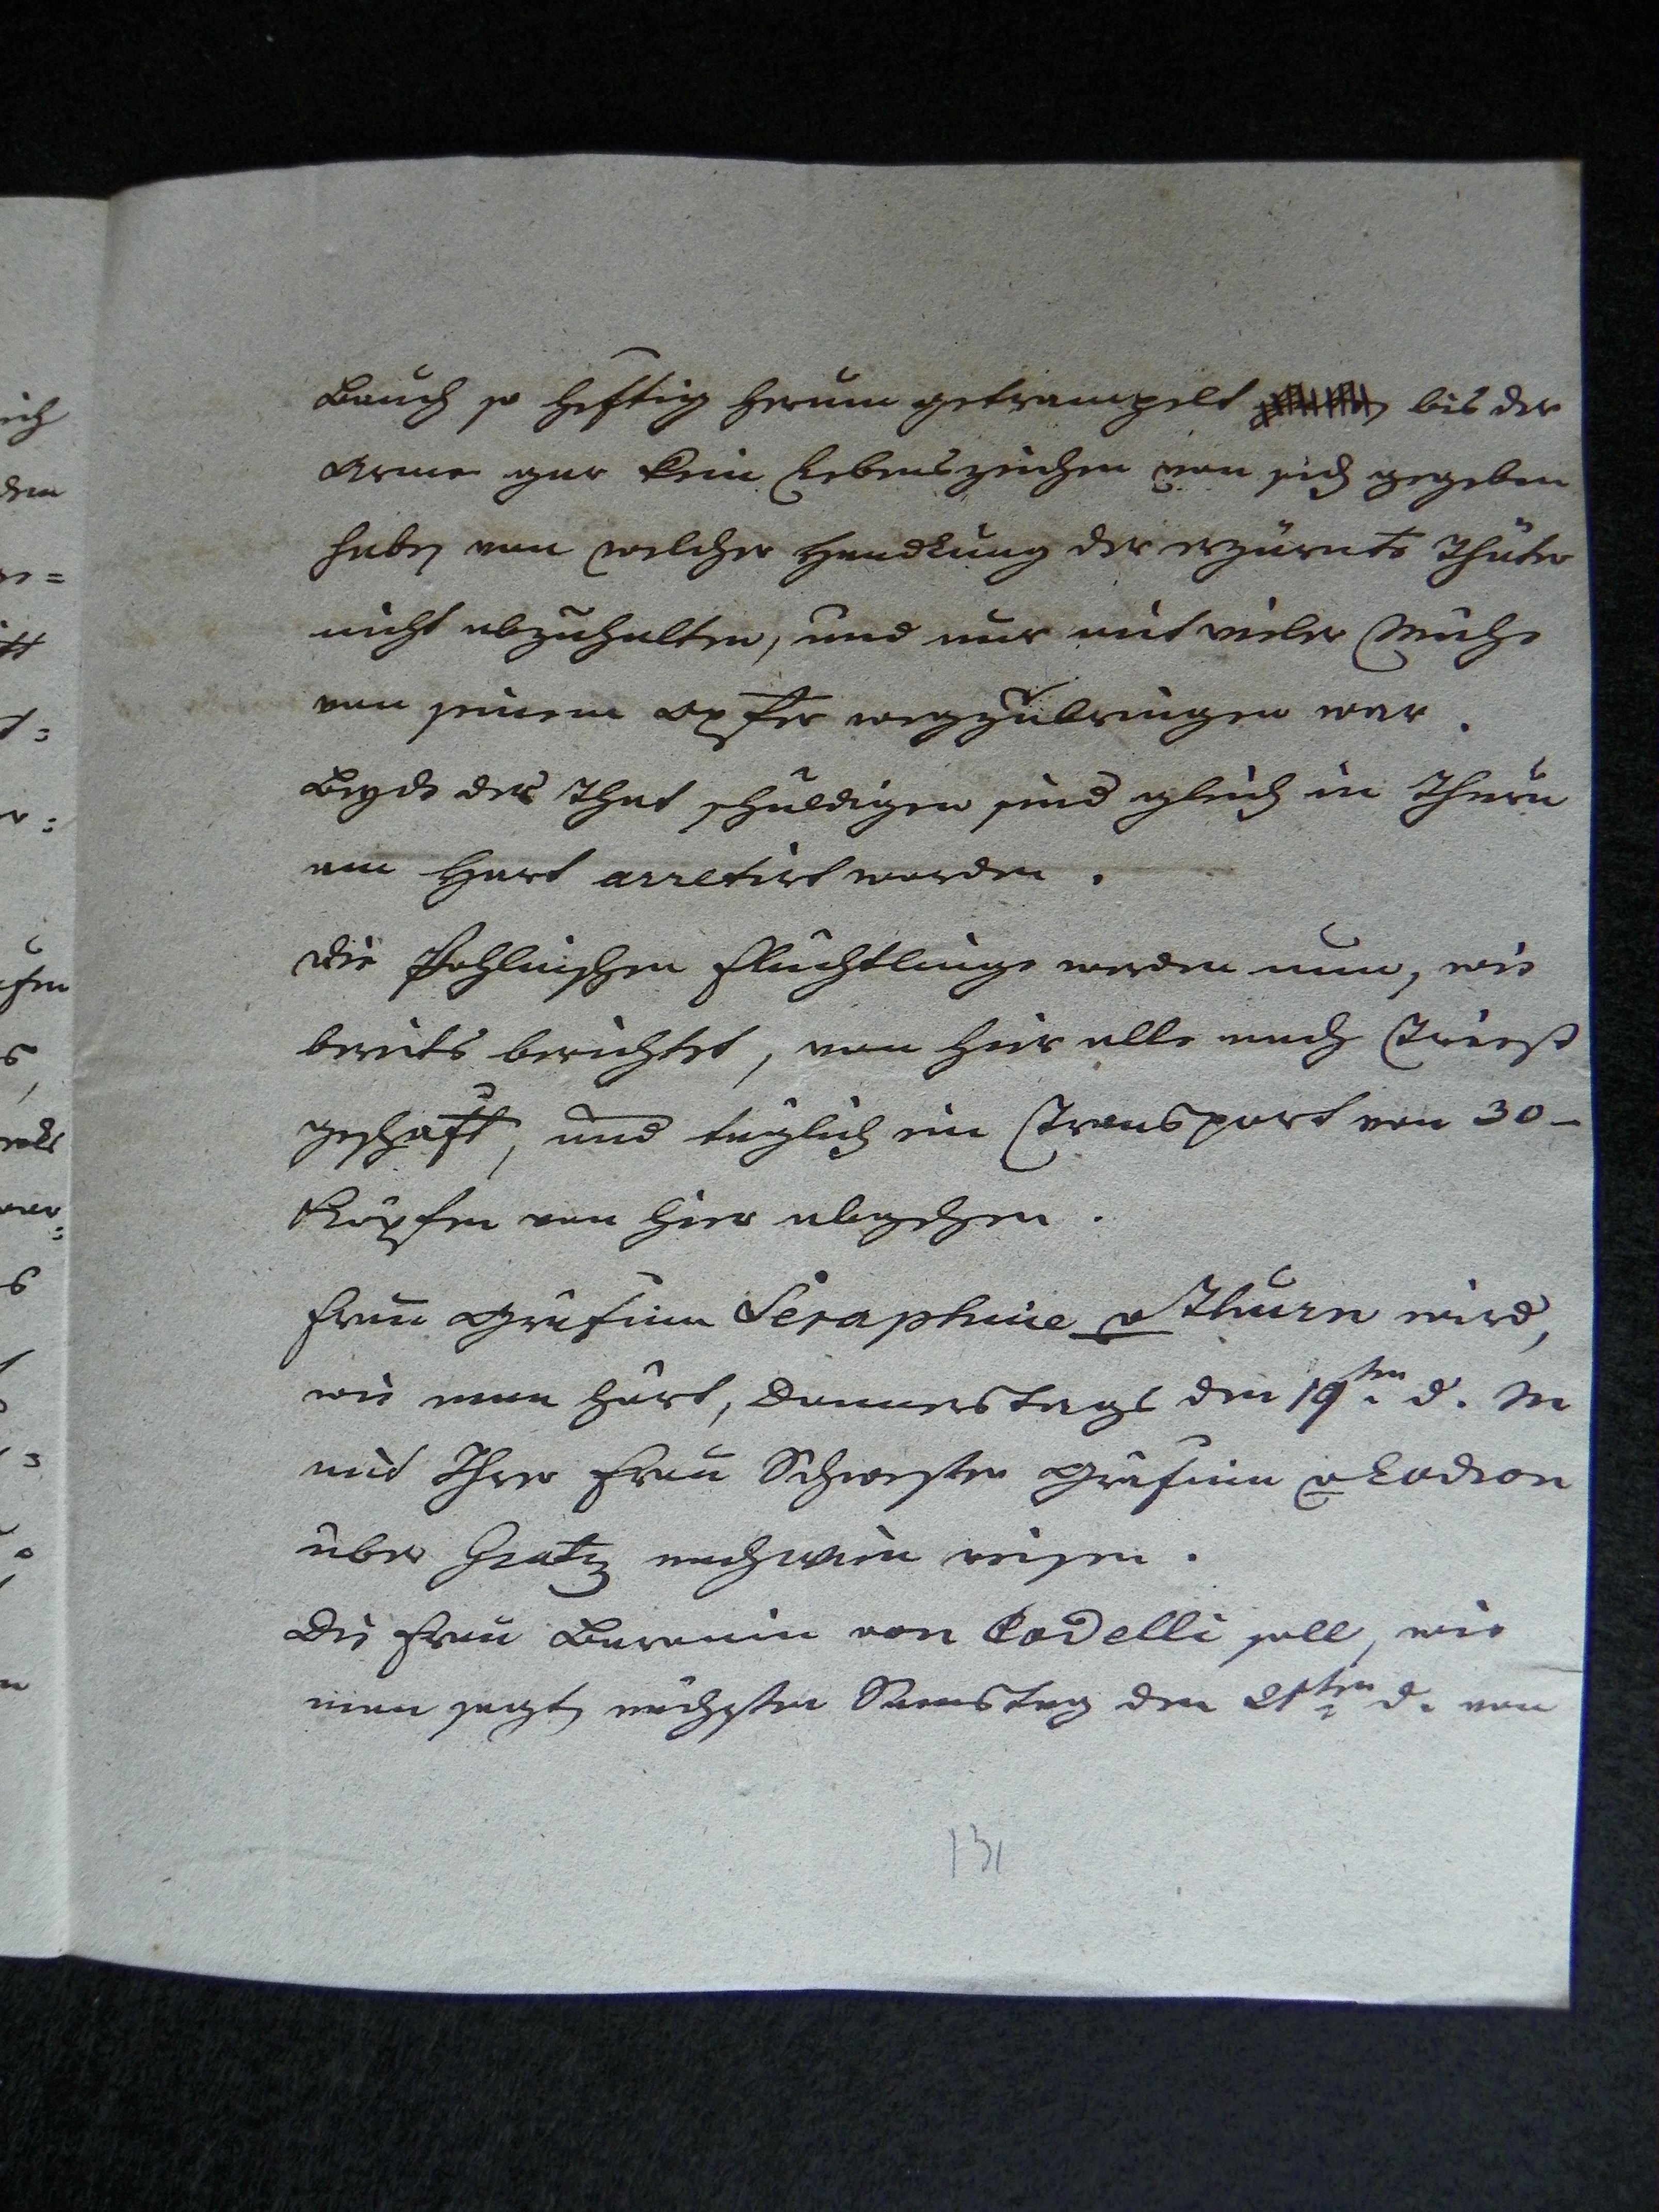 Bauch so heftig herum getrampelt bis der
Arme gar kein Lebenszeichen von sich gegeben
habe, von welcher Handlung der erzürnte Thäter
nicht abzuhalten, und nur mit vieler Mühe
von seinem Opfer wegzubringen war.
Beyde der That schuldigen sind gleich in Thurn
am Hart arretirt worden.
Die Pohlnischen Flüchtlinge werden nun, wie
bereits berichtet, von hier alle nach Triest
geschaft, und täglich ein Transport von 30 –
Köpfen von hier abgehen.
Frau Gräfinn Seraphine v Thurn wird,
wie man hört, Donnerstags den 19ten d. M
mit Ihrer Frau Schwester Gräfinn v Lodron
über Gratz nach Wien reisen.
Die Frau Baronin von Codelli soll, wie
man sagt, nächsten Samstag den 21ten d. von
131